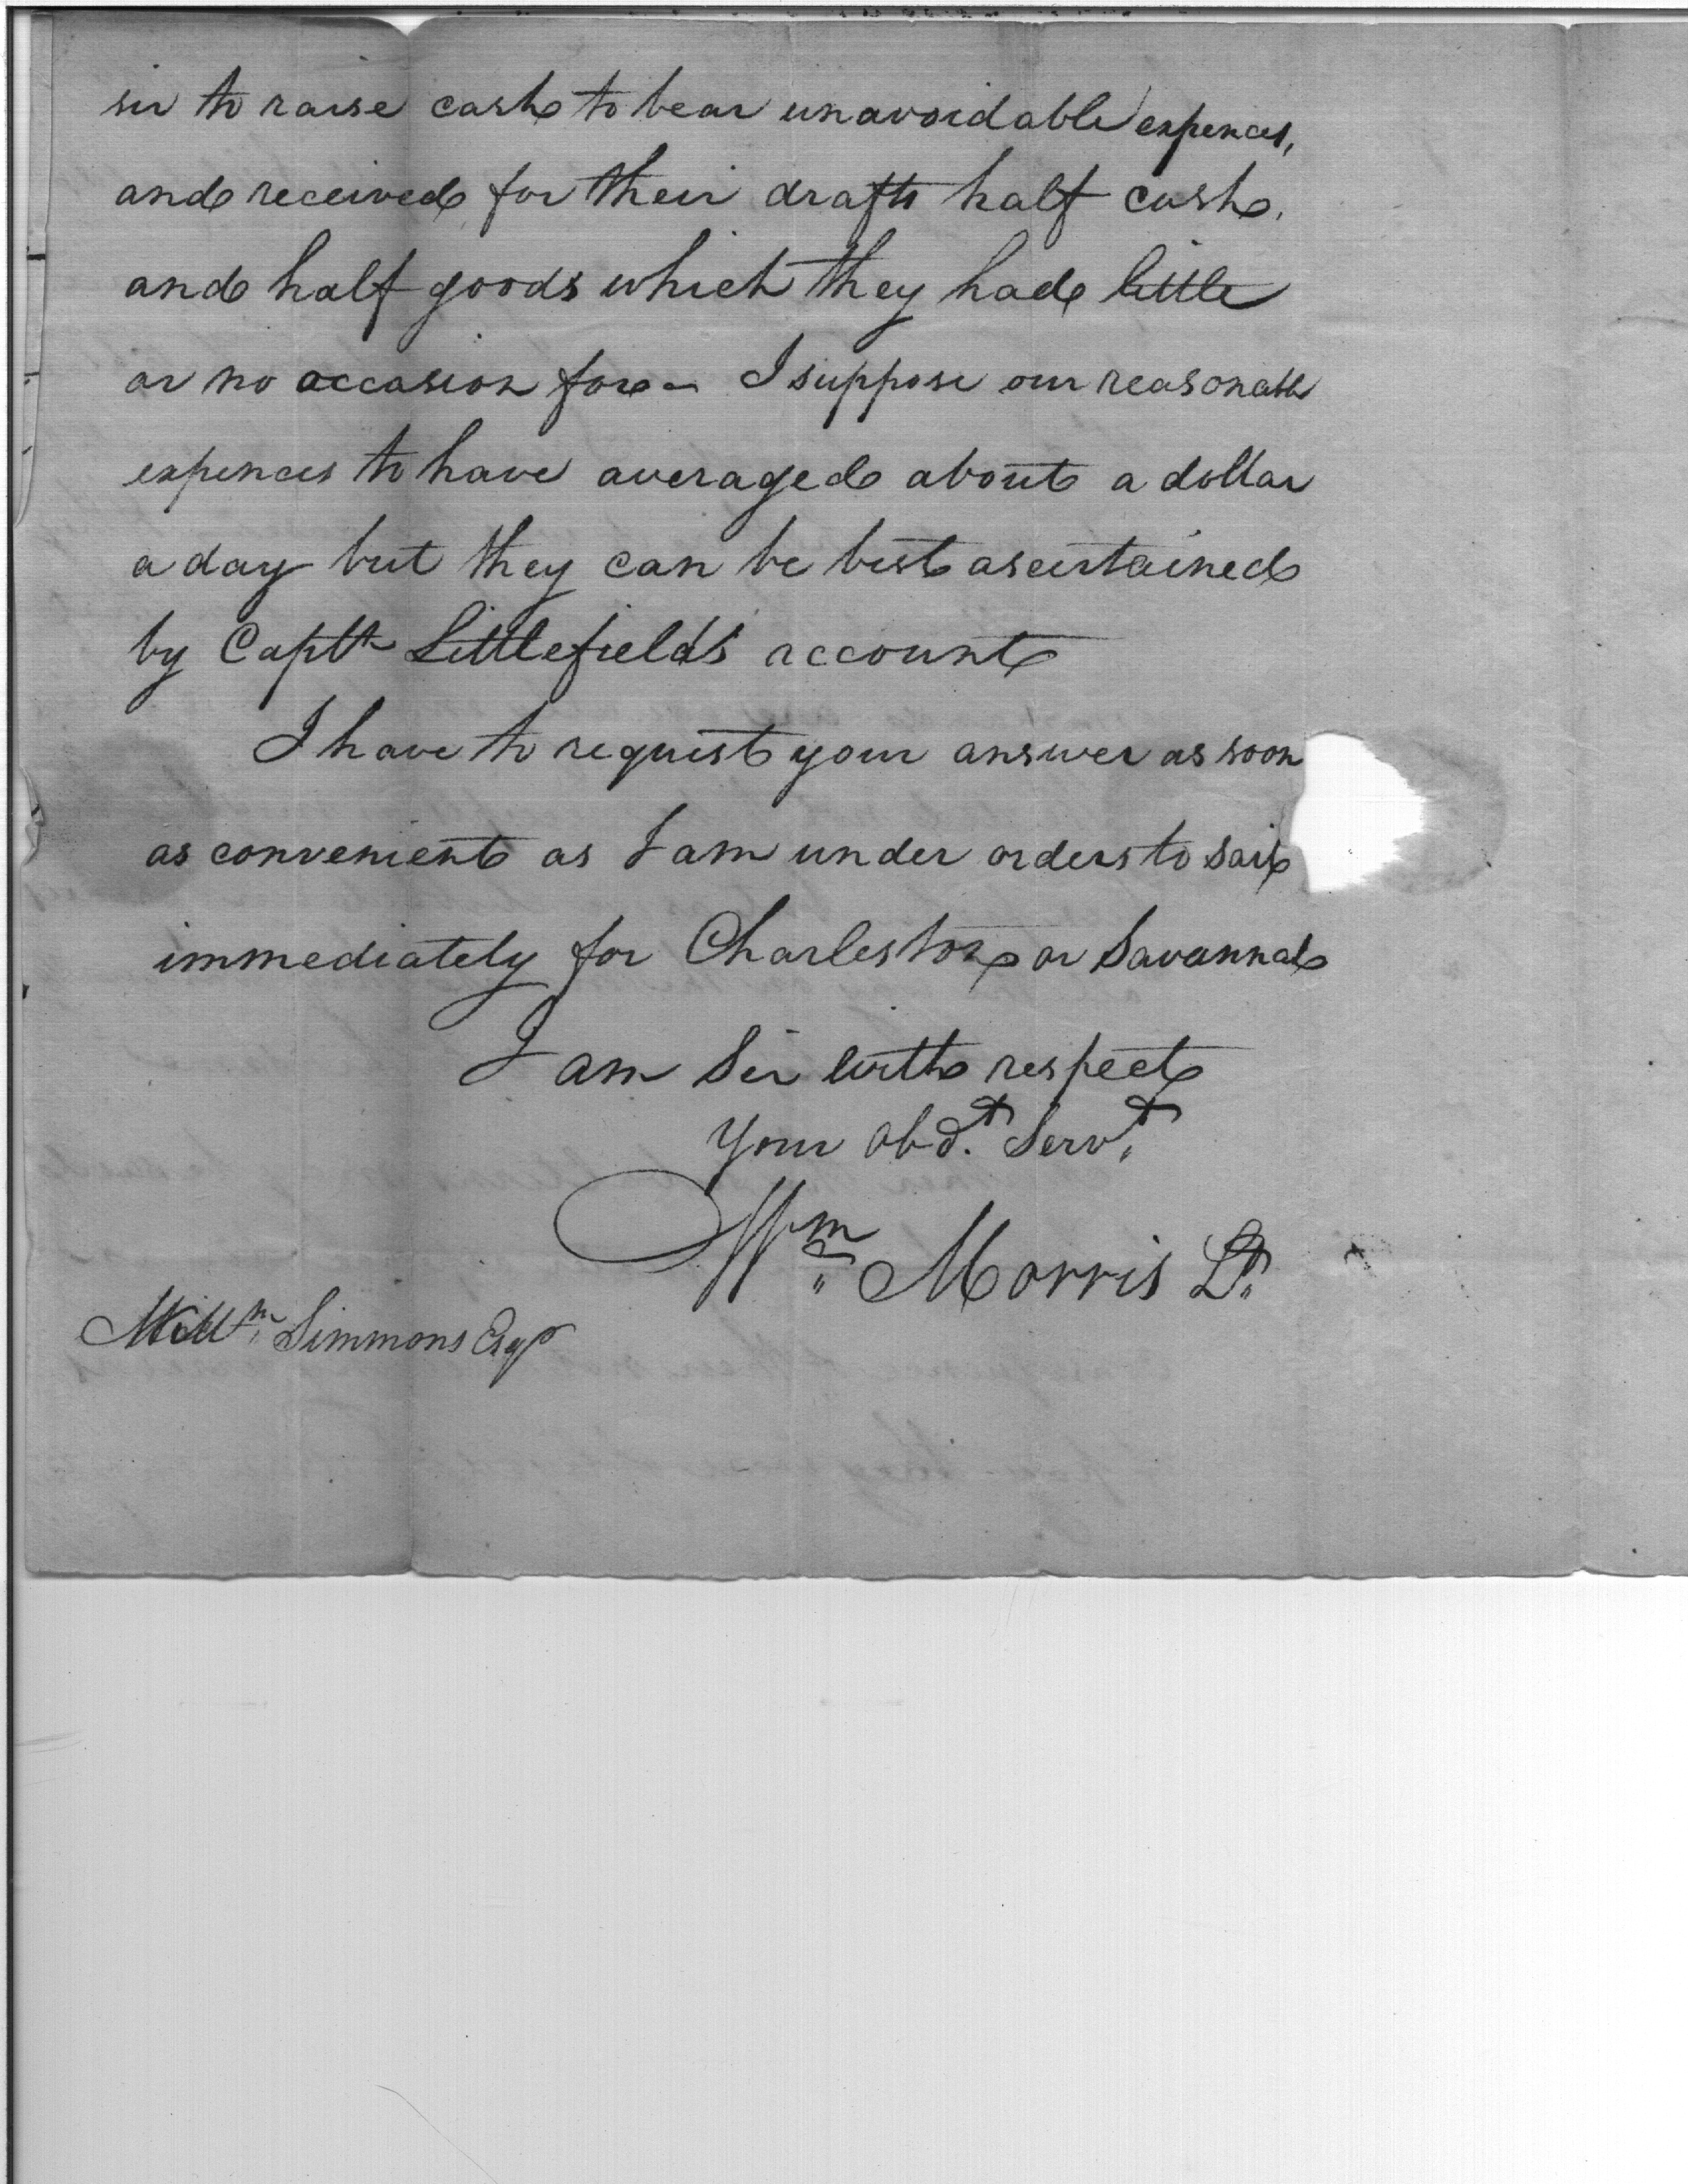 sir to raise cash to bear unavoidable expences,
and received for their drafts half cash,
and half goods which they had little
or no occasion for - I suppose our reasonable
expences to have averaged about a dollar
a day but they can be best ascertained
by Captn Littlefield's account
I have to request your answer as soon
as convenient as I am under orders to sail
immediately for Charleston or Savannah
I am Sir with respect
Your Obdt. Servt.
Wm Morris Lt.
Willm Simmons Esqr